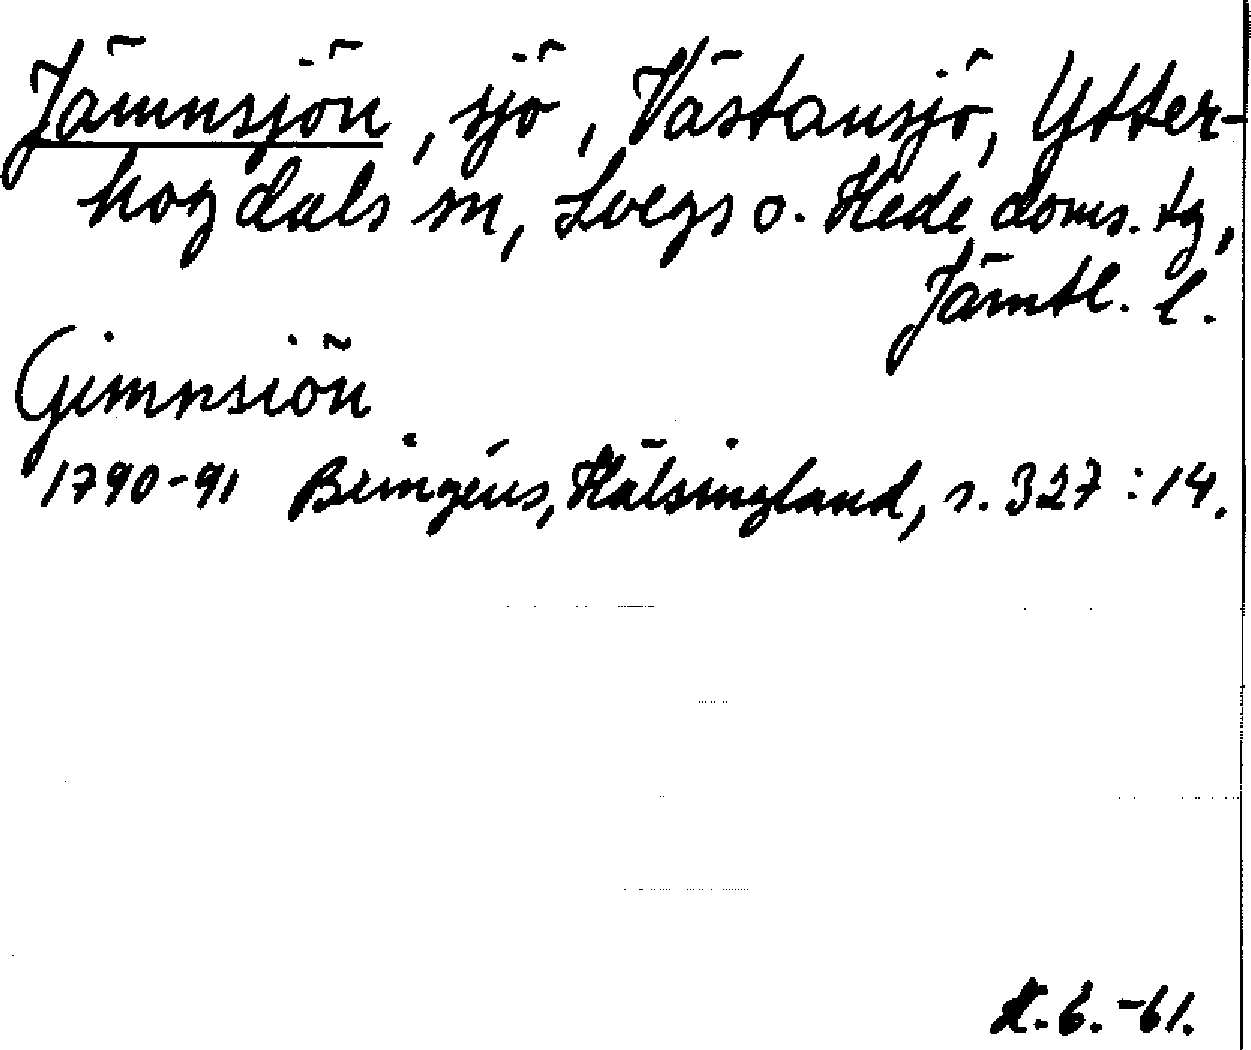 Jämnsjön, sjö, Västansjö, Ytter-
hogdals sn, Svegs o. Hede doms. tg,
Jämtl. l.
Gimnsiön
1790-91 Bringéus, Hälsingland, s. 327:14.
H. G. -61.